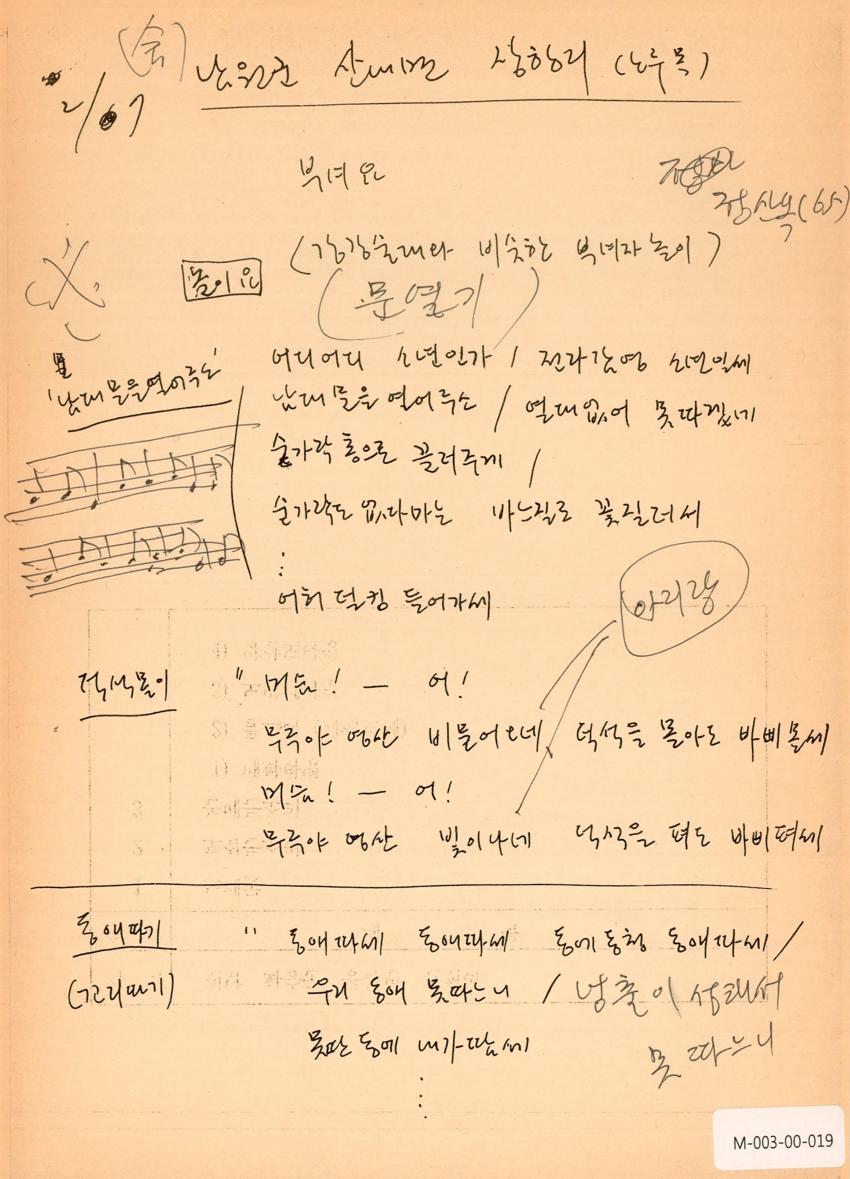 (会) 남원군 산내면 장항리 (노루목)
2/67
부녀요
장산옥(65)
(강강술래와 비슷한 부녀자 놀이)
놀이요
(문열기)
어디어디 소년인가 / 전라감영 소년일세
"남대문을열어주소"
남대문을 열어주소 / 열대없어 못따겠네
숟가락 총으로 끌러주게 /
숟가락도 없다마는 바느질로 꽃질러세
⋮
어허 덜컹 들어가세
아리랑
덕석몰이 " 머슴! — 어!
무릉야 영산 비물어오네 덕석을 몰아도 바삐몰세
머슴! — 어!
무릉야 영산 빛이나네 덕석을 펴도 바삐펴세
동애따기 " 동애따세 동애따세 동에동청 동애따세 /
(고리따기) 우리 동애 못따느니 / 넝출이 성해서
못따느니
못딴 동애 내가땀세
⋮
M-003-00-019